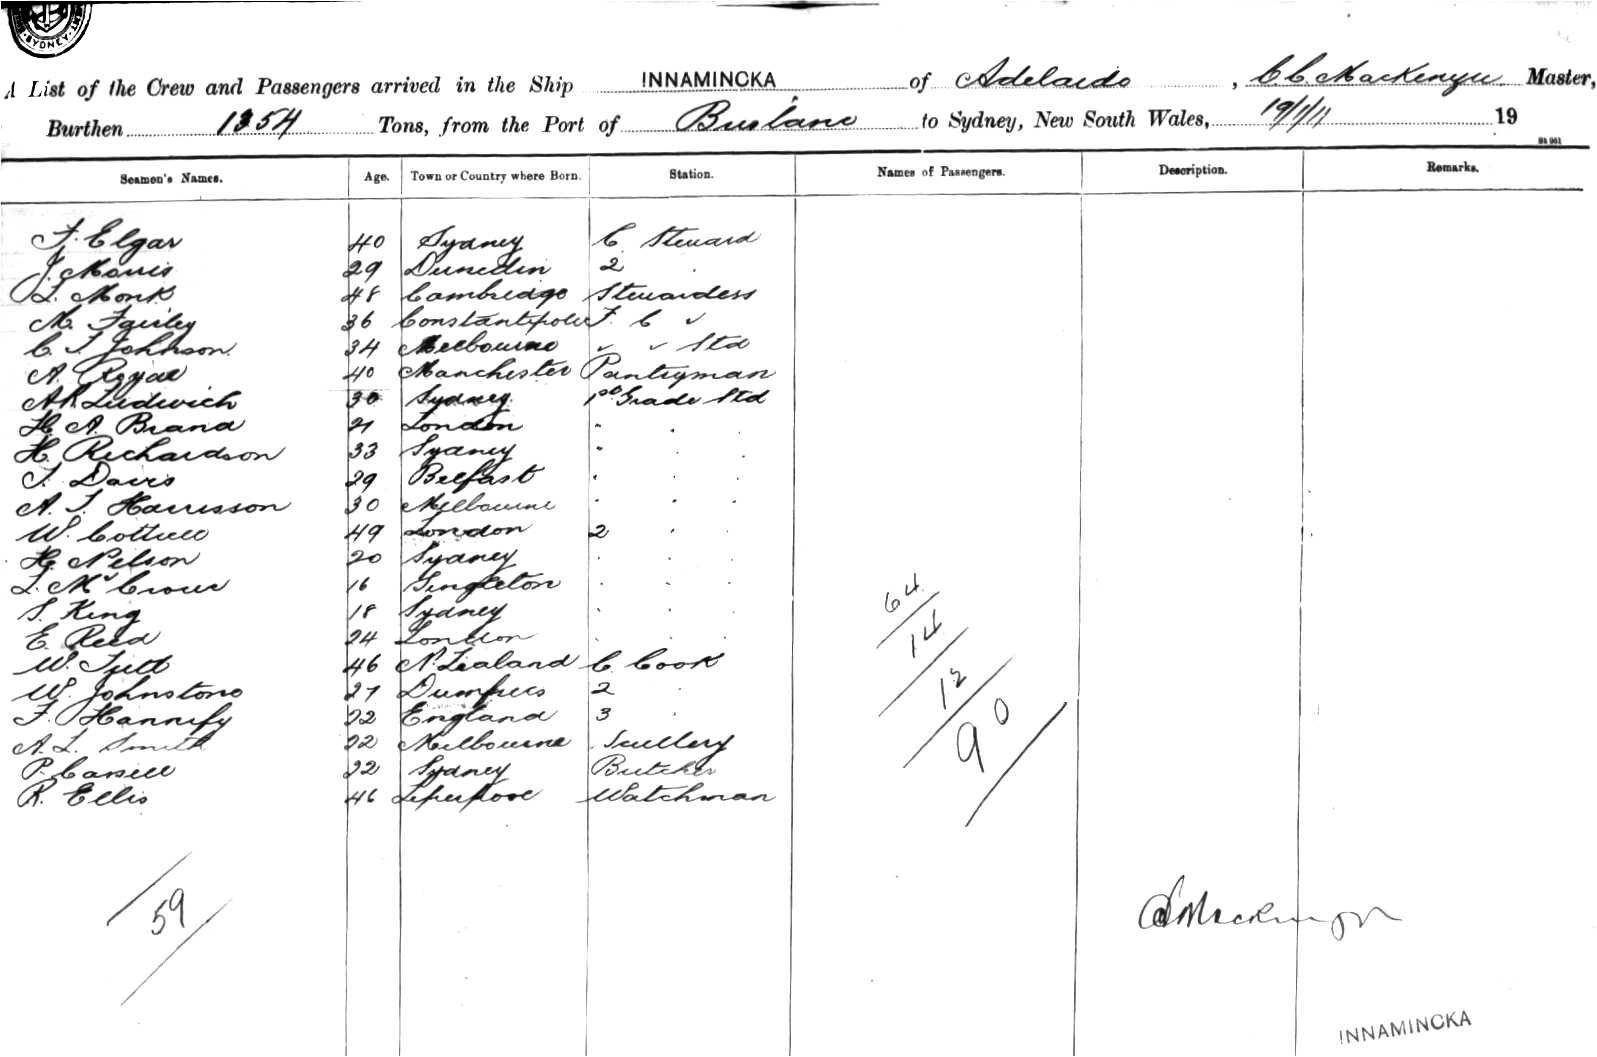 SYDNEY
A List of the Crew and Passengers arrived in the Ship INNAMINCKA of Adelaide, C C Mackenzie Master,
Burthen 1354 Tons, from the Port of Brisbane to Sydney, New South Wales, 19/1/11 19
Seamen's Names. Age. Town or Country where Born. Station. Names of Passengers. Description. Remarks.
F. Elgar 40 Sydney C Steward
J. Morris 29 Dunedin 2 .
L. Monk 48 Cambridge Stewardess
M. Fairley 36 F. C ✓
C. T. Johnson 34 Melbourne ✓ ✓ Std
A. Royal 40 Manchester Pantryman
A R Ludwich 30 Sydney 1st Grade Std
H. A. Brand 21 London " . .
H. Richardson 33 Sydney " . .
T. Davis 29 Belfast . . .
A. T. Harrisson 30 Melbourne . . .
W. Cottrell 49 London 2 . .
H. Nelson 20 Sydney . . .
L. McCrour 16 Singleton . . .
S. King 18 Sydney . . .
E. Reed 24 London . . .
W. Tutt 46 N. Zealand C. Cook
W. Johnstone 27 Dumfries 2 .
F. Hannify 22 England 3 .
A. L. Smith 22 Melbourne Scullery
P. 22 Sydney Butcher
R. Ellis 46 Liverpool Watchman
64
14
12
90
59
C C Mackenzie
INNAMINCKA